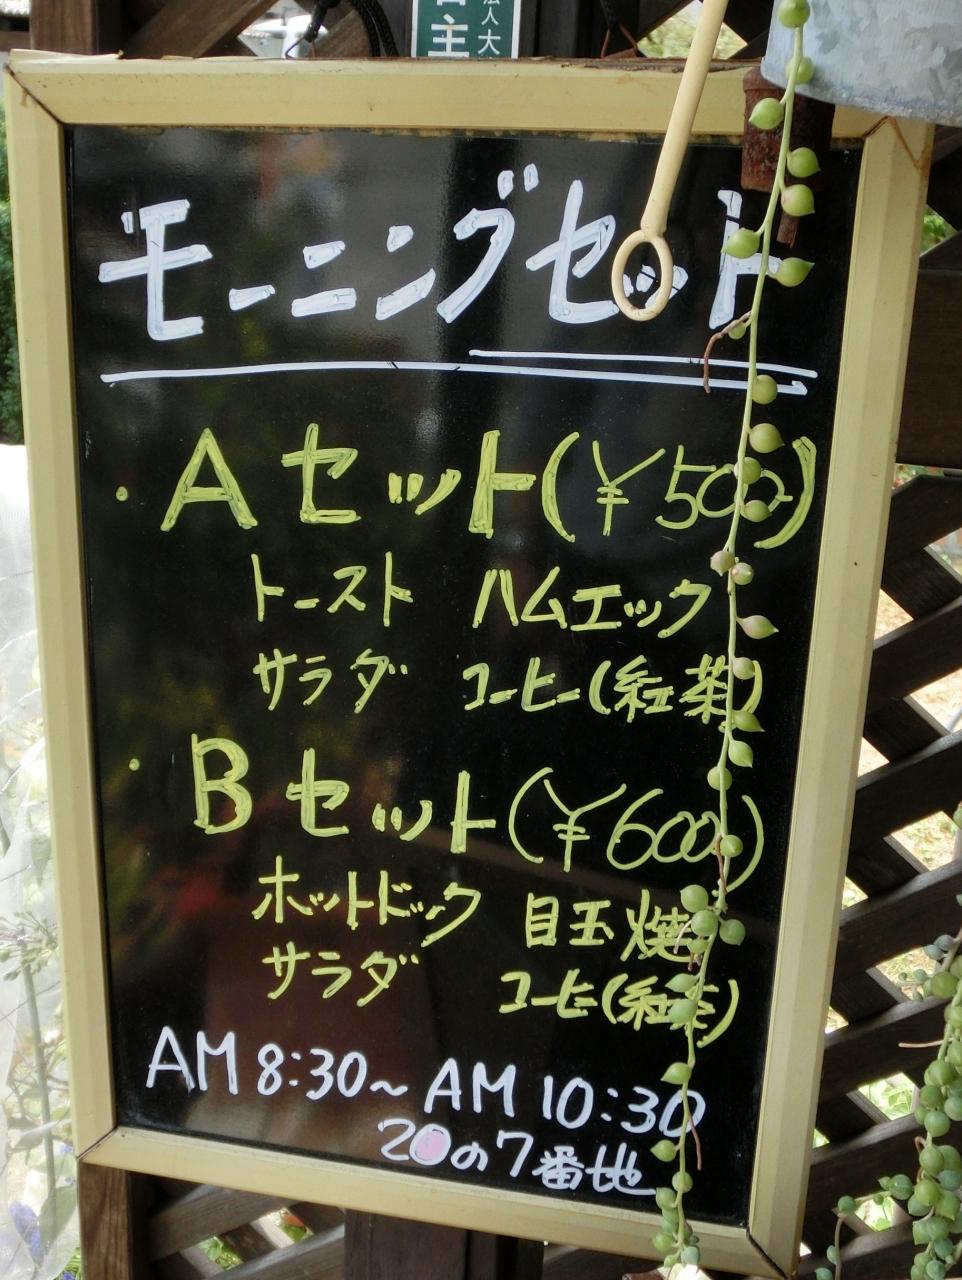 法人大
主
モーニングセット
・Aセット(¥500)
トースト ハムエック
サラダ コーヒー(紅茶)
・Bセット(¥600)
ホットドック 目玉焼
サラダ コーヒー(紅茶)
AM 8:30~AM 10:30
20の7番地